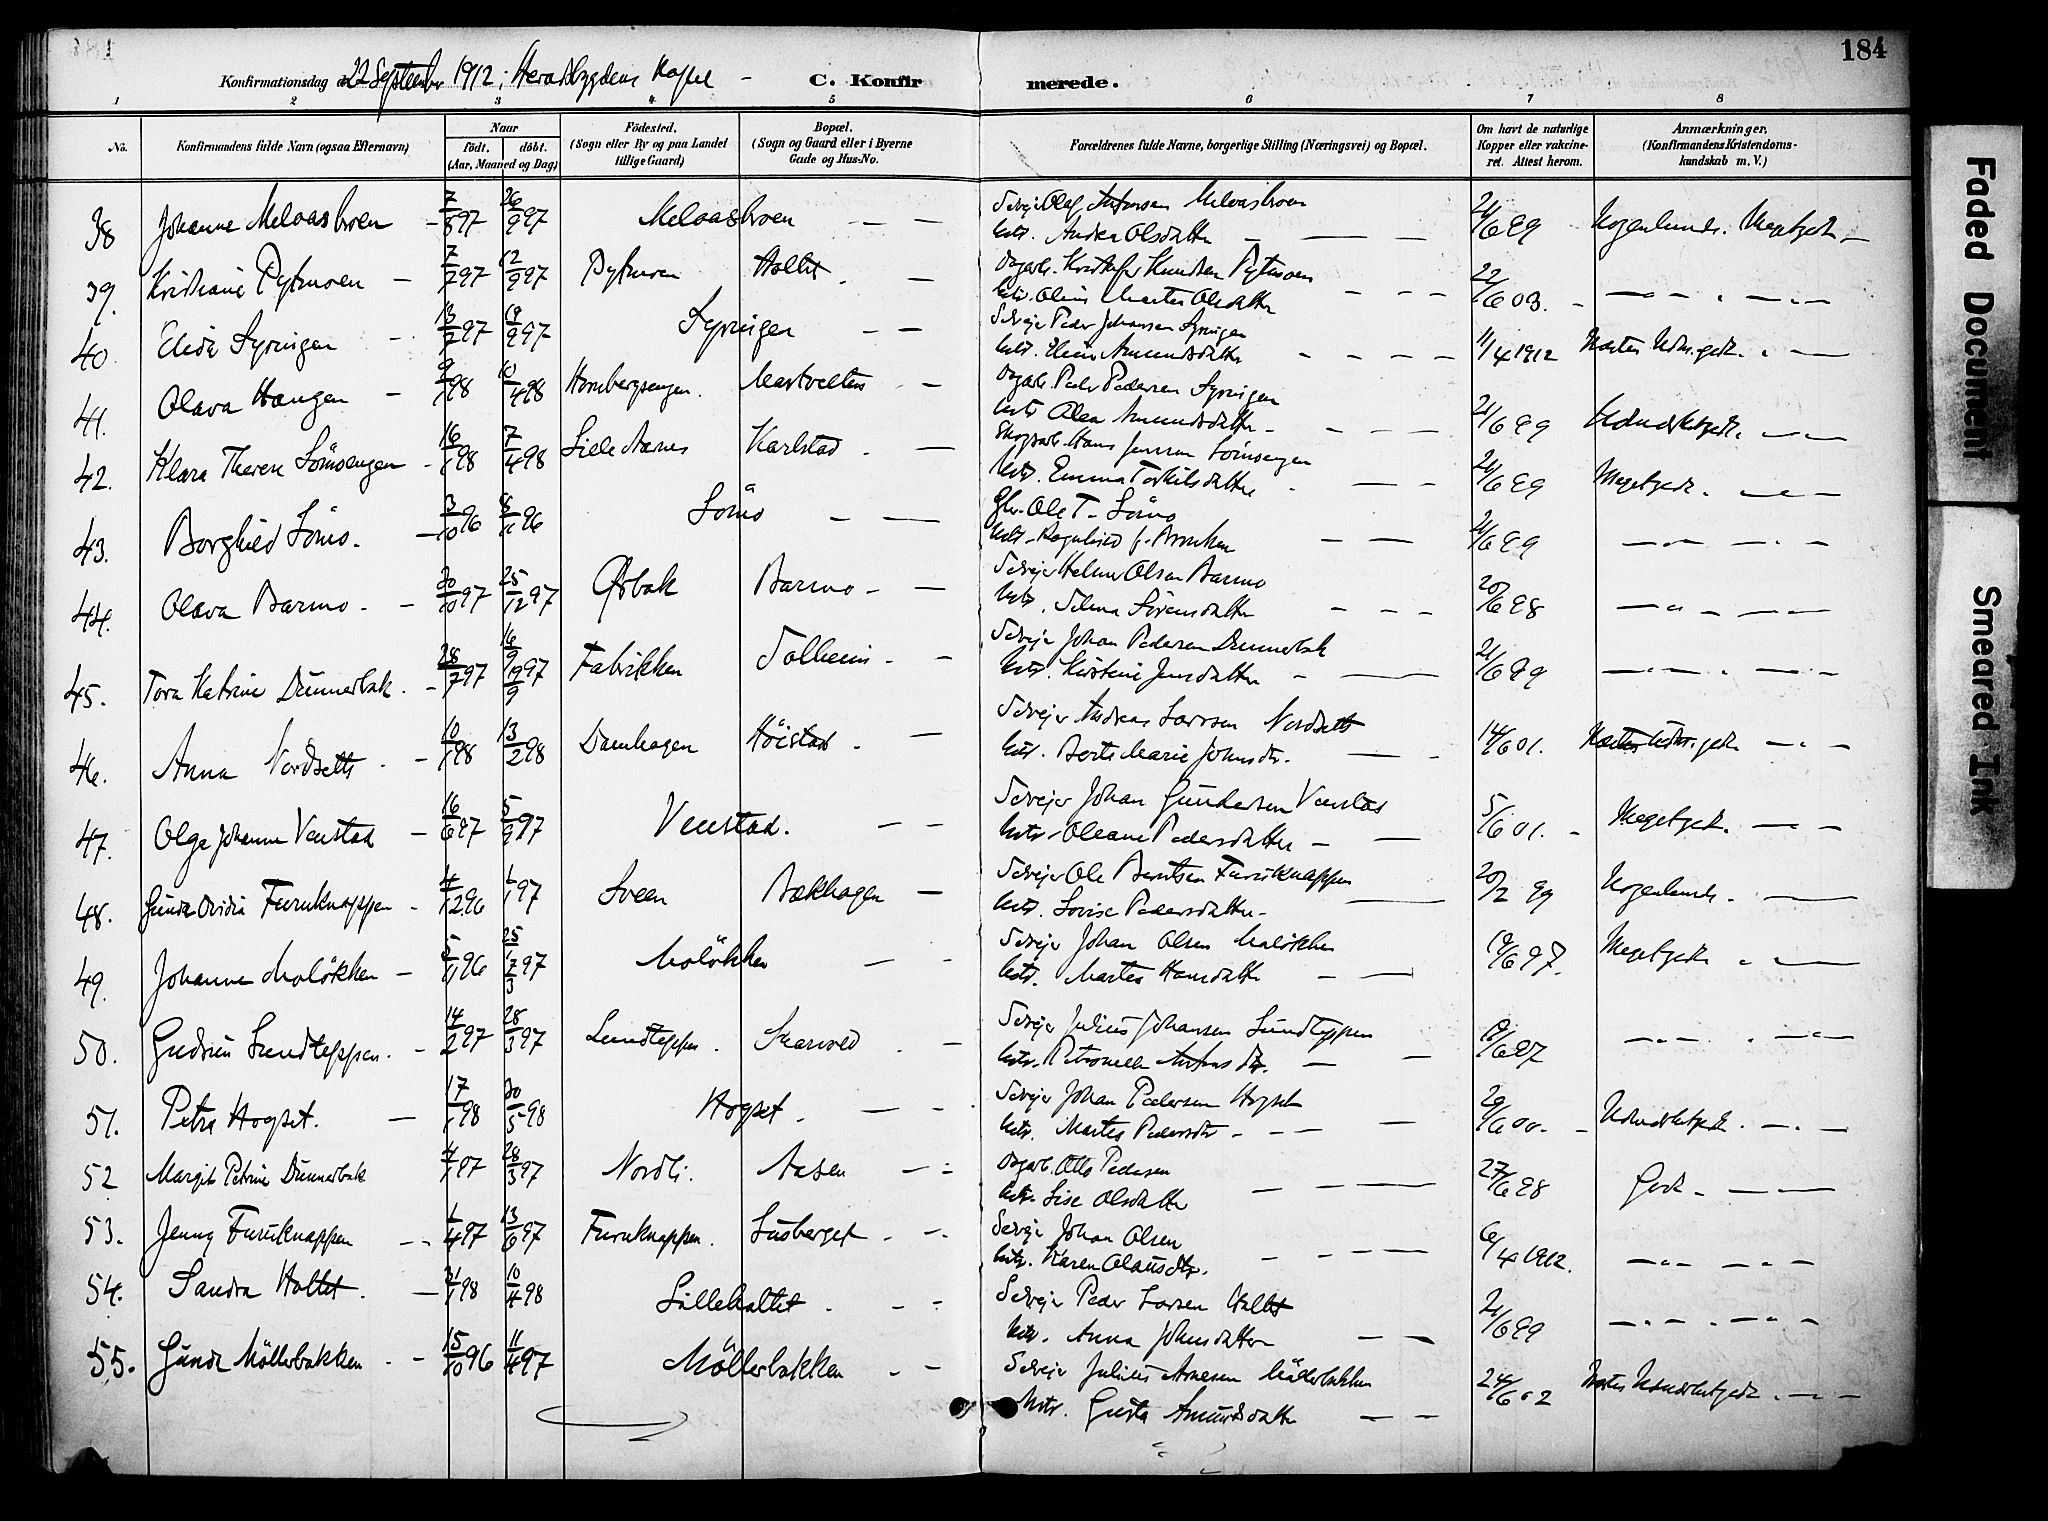 184
Konfirmationsdag d. 22 September 1912 i Heradsbygdens Kapel — C. Konfirmerede.
1 2 3 4 5 6 7 8
No. Konfirmandens fulde Navn (ogsaa Efternavn) Naar født. døbt. (Aar, Maaned og Dag) Fødested. (Sogn eller By og paa Landet tillige Gaard) Bopæl. (Sogn og Gaard eller i Byerne Gade og Hus-No. Forældrenes fulde Navne, borgerlige Stilling (Næringsvei) og Bopæl. Om havt de naturlige Kopper eller vakcineret. Attest herom. Anmærkninger. (Konfirmandens Kristendomskundskab m. V.)
38 Johanne Melaasbroen 97 26/9 97 Melaasbroen — — Selvejer Olaf Melaasbroen
Hstr. Andrea Olsdatter 21/6 99 Nogenlunde. Megetgodt
39. Kristiane Pytmoen 7/7 97 12/9 97 Pytmoen Holtet Dagarb. Kristofer Knudsen Pytmoen
Hstr. Oline Martea Olsdatter 22/6 03.
40. Elida Syringen 13/7 97 19/9 97 Syringen — — Selvejer Peder Johansen Syringen
Hstr. Eline Amundsdatter 11/4 1912 Næsten Udm.godt.
41. Olava Haugen 9/1 98 10/4 98 Hornbergsengen. Martvolten Dagarb. Peder Pedersen Syringen
Hstr. Olea Amundsdatter 21/6 99 Udmerketgodt.
42. Klara Therese Sömoengen 16/1 98 7/4 98 Lille Aarnes Karlstad Skogsarb. Hans Jensen Sömoengen
Hstr. Emma Torkilsdatter 21/6 99 Megetgodt.
43. Borghild Sömo. 3/10 96 8/11 96 Sömo — — Gbr. Ole T. Sömo
Hstr. Ragnhild f. Bronken 21/6 99
44. Olava Barmo. 30/10 97 25/12 97 Ørbak Barmo Selvejer Helmer Olsen Barmo
Hstr. Selma Sörensdatter 20/6 98
45. Tora Katrine Dunnerbak. 28/7 97 16/9 97 19/9 Fabrikken Solheim Selvejer Johan Pedersen Dunnerbak
Hstr. Kristine Jensdatter 21/6 99
46. Anna Nordsetts 10/1 98 13/2 98 Damhagen Höistad Selvejer Andreas Larsen Nordsetts
Hstr. Berte Marie Johnsdtr. 14/6 01. Næsten Udm.godt
47. Olga Johanne Venstad 16/6 97 5/9 97 Venstad. — — Selvejer Johan Gundersen Venstad
Hstr. Oleane Pedersdatter 5/6 01. Megetgodt.
48. Gunda Ovidia Furuknappen 4/12 96 1/1 97 Sveen Bækhagen Selvejer Ole Berntsen Furuknappen
Hstr. Lovise Pedersdatter 20/2 99 Nogenlunde.
49. Johanne Moløkken 5/11 96 25/1 97 7/3 Moløkken — — Selvejer Johan Olsen Moløkken
Hstr. Martea Hansdatter 19/6 97. Megetgodt
50. Gudrun Lundteppen. 14/2 97 28/3 97 Lundteppen. Skarvold Selvejer Julius Johansen Lundteppen
Hstr. Petronelle 19/6 97
51. Petra Hogset. 17/1 98 30/5 98 Hogset. — — Selvejer Johan Pedersen Hogset
Hstr. Martea Pedersdtr. 29/6 00. Udmerketgodt.
52 Margit Petrine Dunnerbak 4/1 97 28/3 97 Nordli. Aasen Dagarb. Otto Pedersen
Hstr. Lise Olsdatter 27/6 98 Godt.
53. Jenny Furuknappen 1/4 97 13/6 97 Furuknappen. Lusberget Selvejer Johan Olsen
Hstr. Karen Olausdtr. 6/4 1912.
54. Sandra Holtet. 31/1 98 10/4 98 Lilleholtet. Selvejer Peder Larsen Holtet
Hstr. Anna Johnsdatter 21/6 99
55. Gunda Möllerbakken 15/10 96 11/4 97 Möllerbakken Selvejer Julius Arnesen Möllerbakken
Hstr. Gusta Amundsdatter 24/6 02 Næsten Udmerketgodt.
Faded Document
Smeared Ink